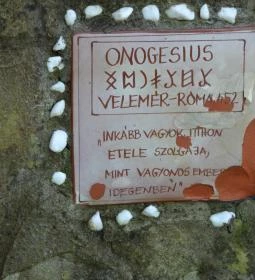 ONOGESIUS
VELEMÉR-RÓMA 452.
„INKÁBB VAGYOK ITTHON
ETELE SZOLGÁJA,
MINT VAGYONOS EMBER
IDEGENBEN"